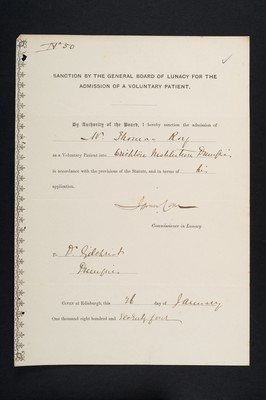 No 50
SANCTION BY THE GENERAL BOARD OF LUNACY FOR THE
ADMISSION OF A VOLUNTARY PATIENT.
By Authority of the Board, I hereby sanction the admission of
Mr. Thomas
as a Voluntary Patient into Crichton Institution Dumfries
in accordance with the provisions of the Statute, and in terms of his
application.
Commissioner in Lunacy.
To Dr. Gilchrist
Dumfries
GIVEN at Edinburgh, this 26 day of January
One thousand eight hundred and